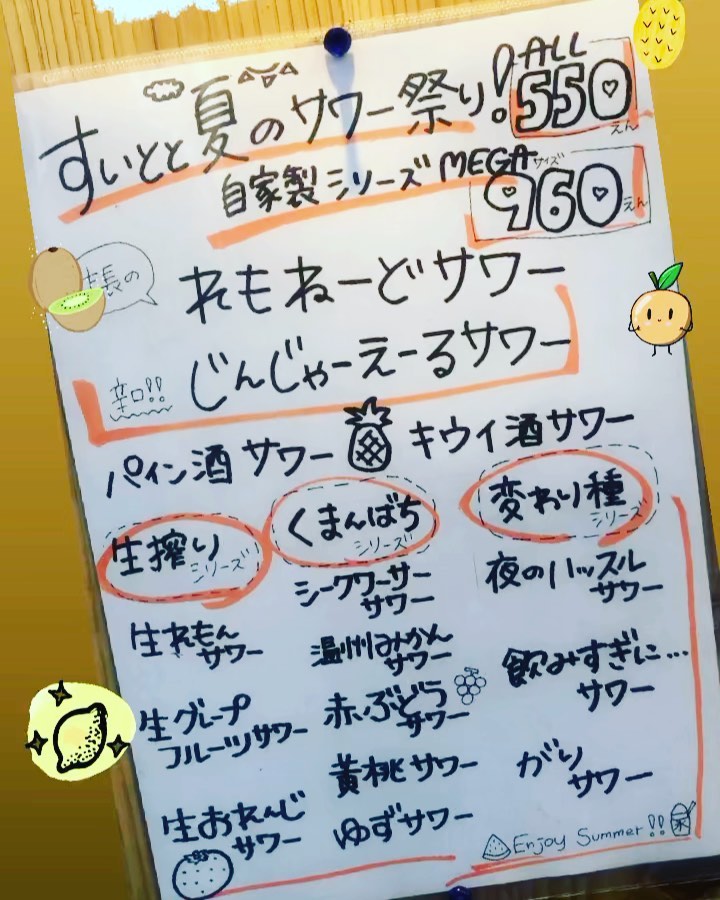 すいとと夏のサワー祭り!
ALL
550
えん
自家製シリーズ
MEGAサイズ
960
えん
長の
れもねーどサワー
辛口!!
じんじゃーえーるサワー
パイン酒サワー
キウイ酒サワー
生搾り
シリーズ
生れもん
サワー
生グレープ
フルーツサワー
生おれんじ
サワー
くまんばち
シリーズ
シークワーサー
サワー
温州みかん
サワー
赤ぶどう
サワー
黄桃サワー
ゆずサワー
変わり種
シリーズ
夜のハッスル
サワー
飲みすぎに…
サワー
がり
サワー
Enjoy Summer!!